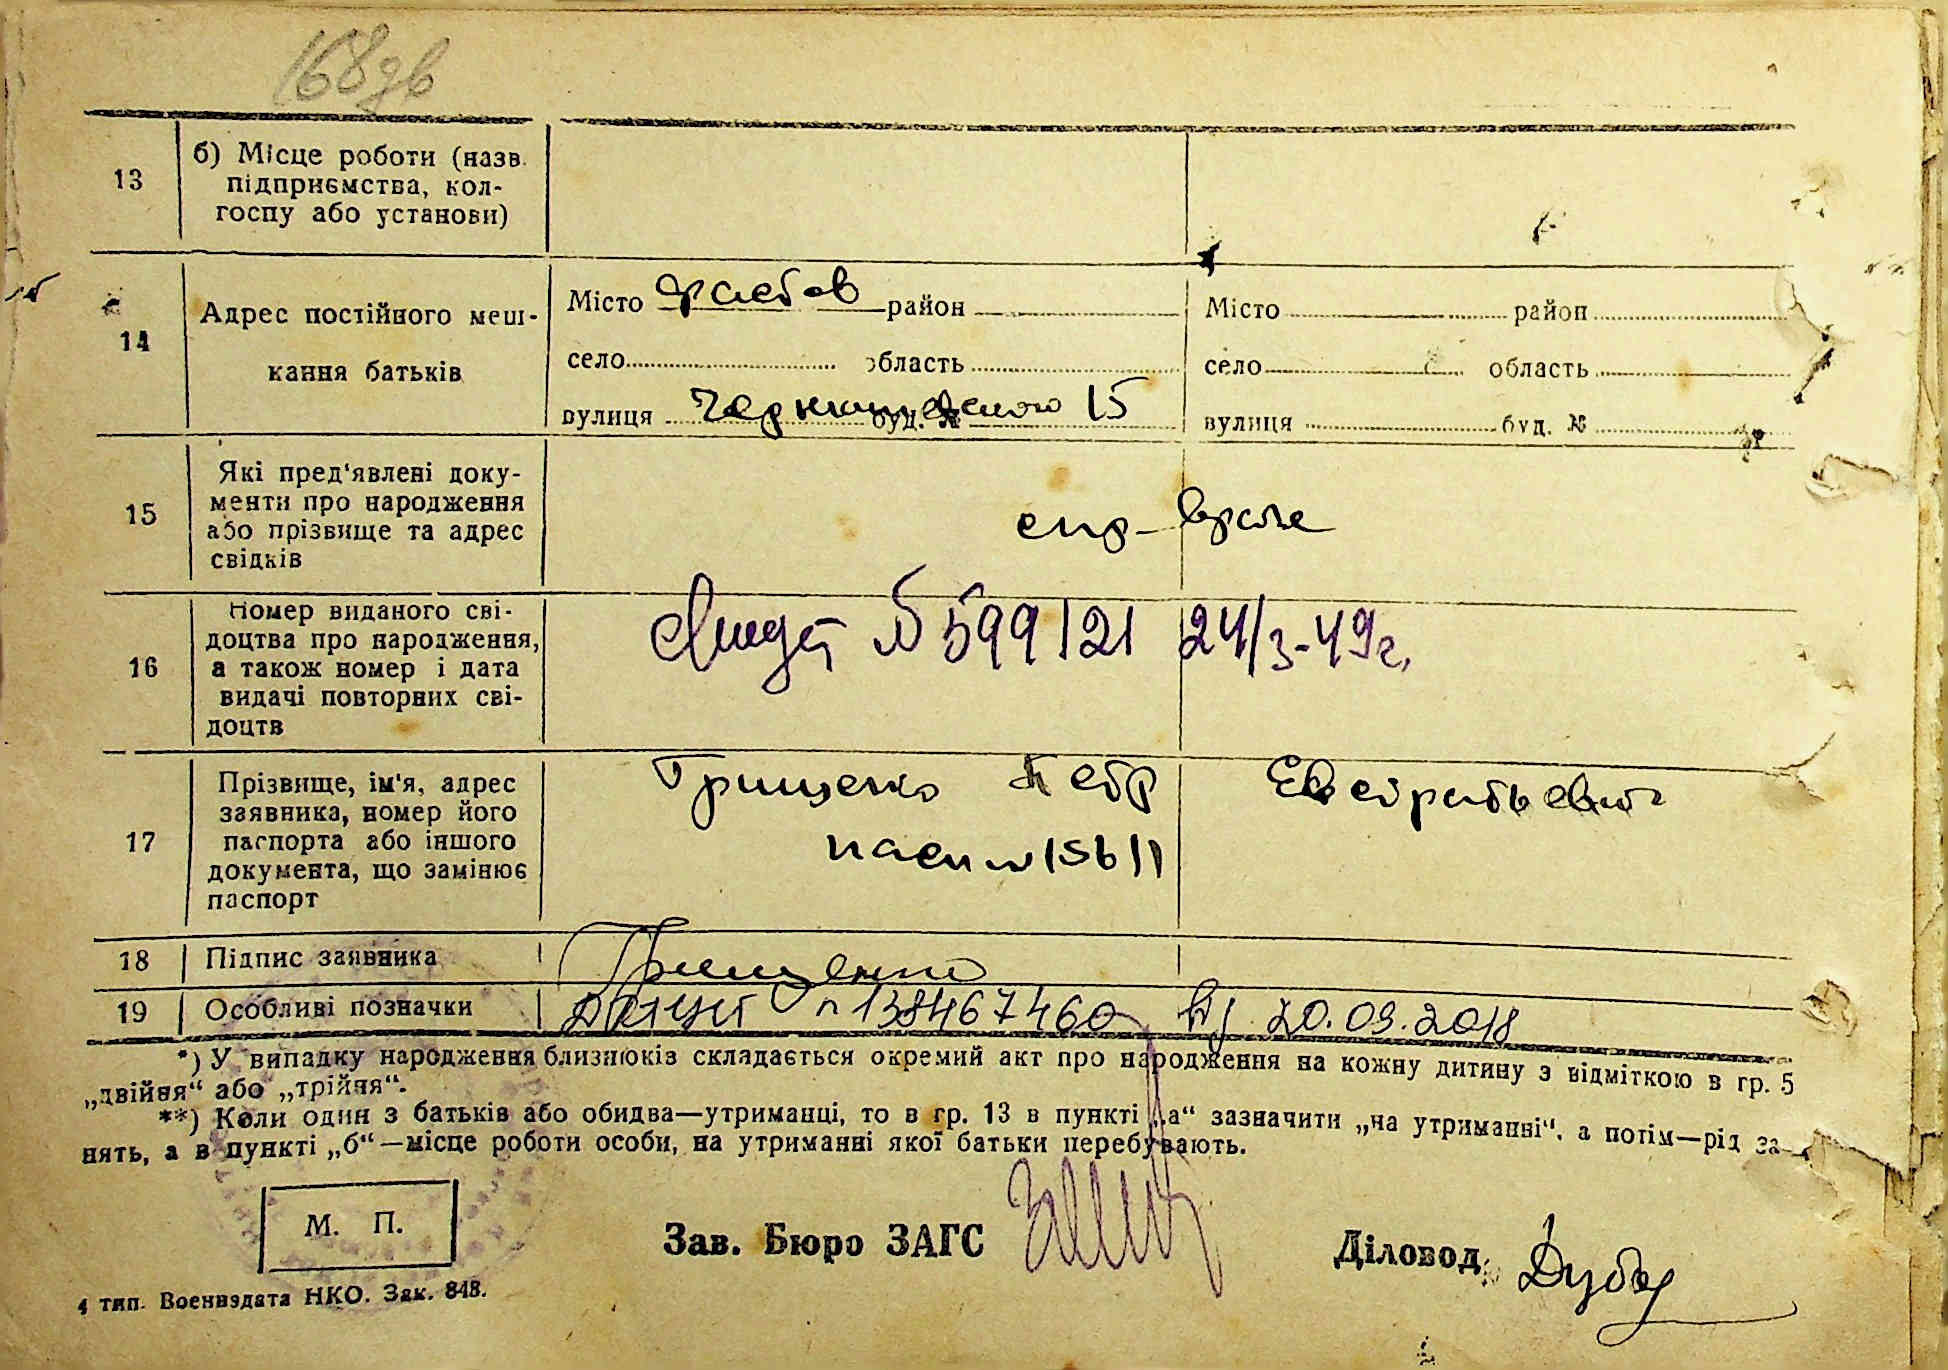 13
б) Місце роботи (назв.
підприємства, кол-
госпу або установи)
14
Адрес постійного меш-
кання батьків
Місто район
село область
вулиця буд. № 15
Місто район
село область
вулиця буд. №
15
Які пред'явлені доку-
менти про народження
або прізвище та адрес
свідків
спр-
16
Номер виданого сві-
доцтва про народження,
а також номер і дата
видачі повторних сві-
доцтв
№ 599121 24/3-49г.
17
Прізвище, ім'я, адрес
заявника, номер його
паспорта або іншого
документа, що замінює
паспорт
Грищенко Петр Евстратьевич
18
Підпис заявника
Грищенко
19
Особливі позначки
138467460 20.09.2018
*) У випадку народження близнюків складається окремий акт про народження на кожну дитину з відміткою в гр. 5
„двійня“ або „трійня“.
**) Коли один з батьків або обидва—утриманці, то в гр. 13 в пункті „а“ зазначити „на утриманні“, а потім—рід за-
нять, а в пункті „б“—місце роботи особи, на утриманні якої батьки перебувають.
М. П.
Зав. Бюро ЗАГС
Діловод
4 тип. Воениздата НКО. Зак. 848.